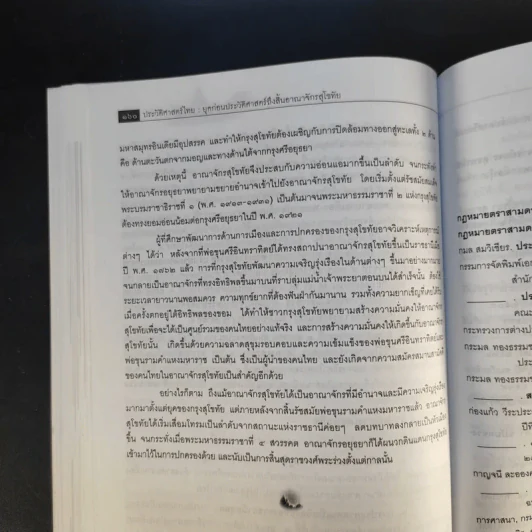 ๑๖๑ ประวัติศาสตร์ไทย : ยุคก่อนประวัติศาสตร์ถึงสิ้นอาณาจักรสุโขทัย
มหาสมุทรอินเดียมีอุปสรรค และทำให้กรุงสุโขทัยต้องเผชิญกับการปิดล้อมทางออกสู่ทะเลทั้ง ๒ ด้าน
คือ ด้านตะวันตกจากมอญและทางด้านใต้จากกรุงศรีอยุธยา
ด้วยเหตุนี้ อาณาจักรสุโขทัยจึงประสบกับความอ่อนแอมากขึ้นเป็นลำดับ จนกระทั่ง
ให้อาณาจักรอยุธยาพยายามขยายอำนาจเข้าไปยังอาณาจักรสุโขทัย โดยเริ่มตั้งแต่รัชสมัย
พระบรมราชาธิราชที่ ๑ (พ.ศ. ๑๙๑๓-๑๙๓๑) เป็นต้นมาจนพระมหาธรรมราชาที่ ๒ แห่งกรุงสุโขทัย
ต้องทรงยอมอ่อนน้อมต่อกรุงศรีอยุธยาในปี พ.ศ. ๑๙๒๑
ผู้ที่ศึกษาพัฒนาการด้านการเมืองและการปกครองของกรุงสุโขทัยอาจวิเคราะห์เหตุการณ์
ต่างๆ ได้ว่า หลังจากที่พ่อขุนศรีอินทราทิตย์ได้ทรงสถาปนาอาณาจักรสุโขทัยขึ้นเป็นราชธานี
ปี พ.ศ. ๑๗๙๒ แล้ว การที่กรุงสุโขทัยพัฒนาความเจริญรุ่งเรืองในด้านต่างๆ ขึ้นมาอย่าง
จนกลายเป็นอาณาจักรที่ทรงอิทธิพลขึ้นมาบนที่ราบลุ่มแม่น้ำเจ้าพระยาตอนบนได้สำเร็จนั้น ต้องใช้
ระยะเวลายาวนานพอสมควร ความทุกข์ยากที่ต้องฟันฝ่ากันมานาน รวมทั้งความยากเข็ญที่เคยได้รับ
เมื่อครั้งตกอยู่ใต้อิทธิพลของขอม ได้ทำให้ชาวกรุงสุโขทัยพยายามสร้างความมั่นคงให้อาณาจักร
สุโขทัยเพื่อจะได้เป็นศูนย์รวมของคนไทยอย่างแท้จริง และการสร้างความมั่นคงให้เกิดขึ้นกับอาณาจักร
สุโขทัยนั้น เกิดขึ้นด้วยความฉลาดสุขุมรอบคอบและความเข้มแข็งของพ่อขุนศรีอินทราทิตย์และ
พ่อขุนรามคำแหงมหาราช เป็นต้น ซึ่งเป็นผู้นำของคนไทย และยังเกิดจากความสมัครสมานสามัคคี
ของคนไทยในอาณาจักรสุโขทัยเป็นสำคัญอีกด้วย
อย่างไรก็ตาม ถึงแม้อาณาจักรสุโขทัยได้เป็นอาณาจักรที่มีอำนาจและมีความเจริญรุ่งเรือง
มากมาตั้งแต่ยุคของกรุงสุโขทัย แต่ภายหลังจากสิ้นรัชสมัยพ่อขุนรามคำแหงมหาราชแล้ว อาณาจักร
สุโขทัยได้เริ่มเสื่อมโทรมเป็นลำดับจากสถานะราชธานีค่อยๆ ลดบทบาทลงกลายเป็นหัวเมือง
ขึ้น จนกระทั่งเมื่อพระมหาธรรมราชาที่ ๔ สวรรคต อาณาจักรอยุธยาก็ได้ผนวกดินแดนกรุงสุโขทัย
เข้ามาไว้ในการปกครองด้วย และนับเป็นการสิ้นสุดราชวงศ์พระร่วงตั้งแต่กาลนั้น
กฎหมายตราสามดวง
กฎหมายตราสามดว
กมล สมวิเชียร. ประ
กรรมการจัดพิมพ์เอก
สำนัก
ป
คณะ
กระทรวงการต่างป
กระมล ทองธรรมช
กระมล ทองธรรม
ส
ก่องแก้ว วีระประ
ปีที่
กาญจนี ละออง
การศาสนา, กรม